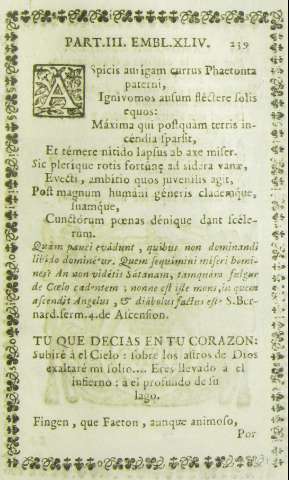 PART.III. EMBL.XLIV. 239
Aspicis aurigam currus Phaetonta
paterni,
Ignivomos ausum flectere solis
equos:
Máxima qui postquàm terris in-
cendia sparsit,
Et témere nitido lapsus ab axe miser.
Sic plerique rotis fortúnę ad sídara vanæ,
Evecti, ambítio quos juvenîlis agit,
Post magnum humáni géneris clademque,
suamque,
Cunctórum pœnas dénique dant scéle-
rum.
Quàm pauci evádunt, quibus non dominandi
libído dominétur. Quem sequímini míseri homi-
nes? An non vidétis Sátanam, tamquàm fulgur
de Cœlo cadéntem; nonne est iste mons, in quem
ascendit Angelus, & diábolus factus est? S. Ber-
nard. serm. 4. de Ascension.
TU QUE DECIAS EN TU CORAZON:
Subiré à el Cielo: sobre los astros de Dios
exaltaré mi solio.... Eres llevado à el
infierno: à el profundo de su
lago.
Fingen, que Faeton, aunque animoso,
Por